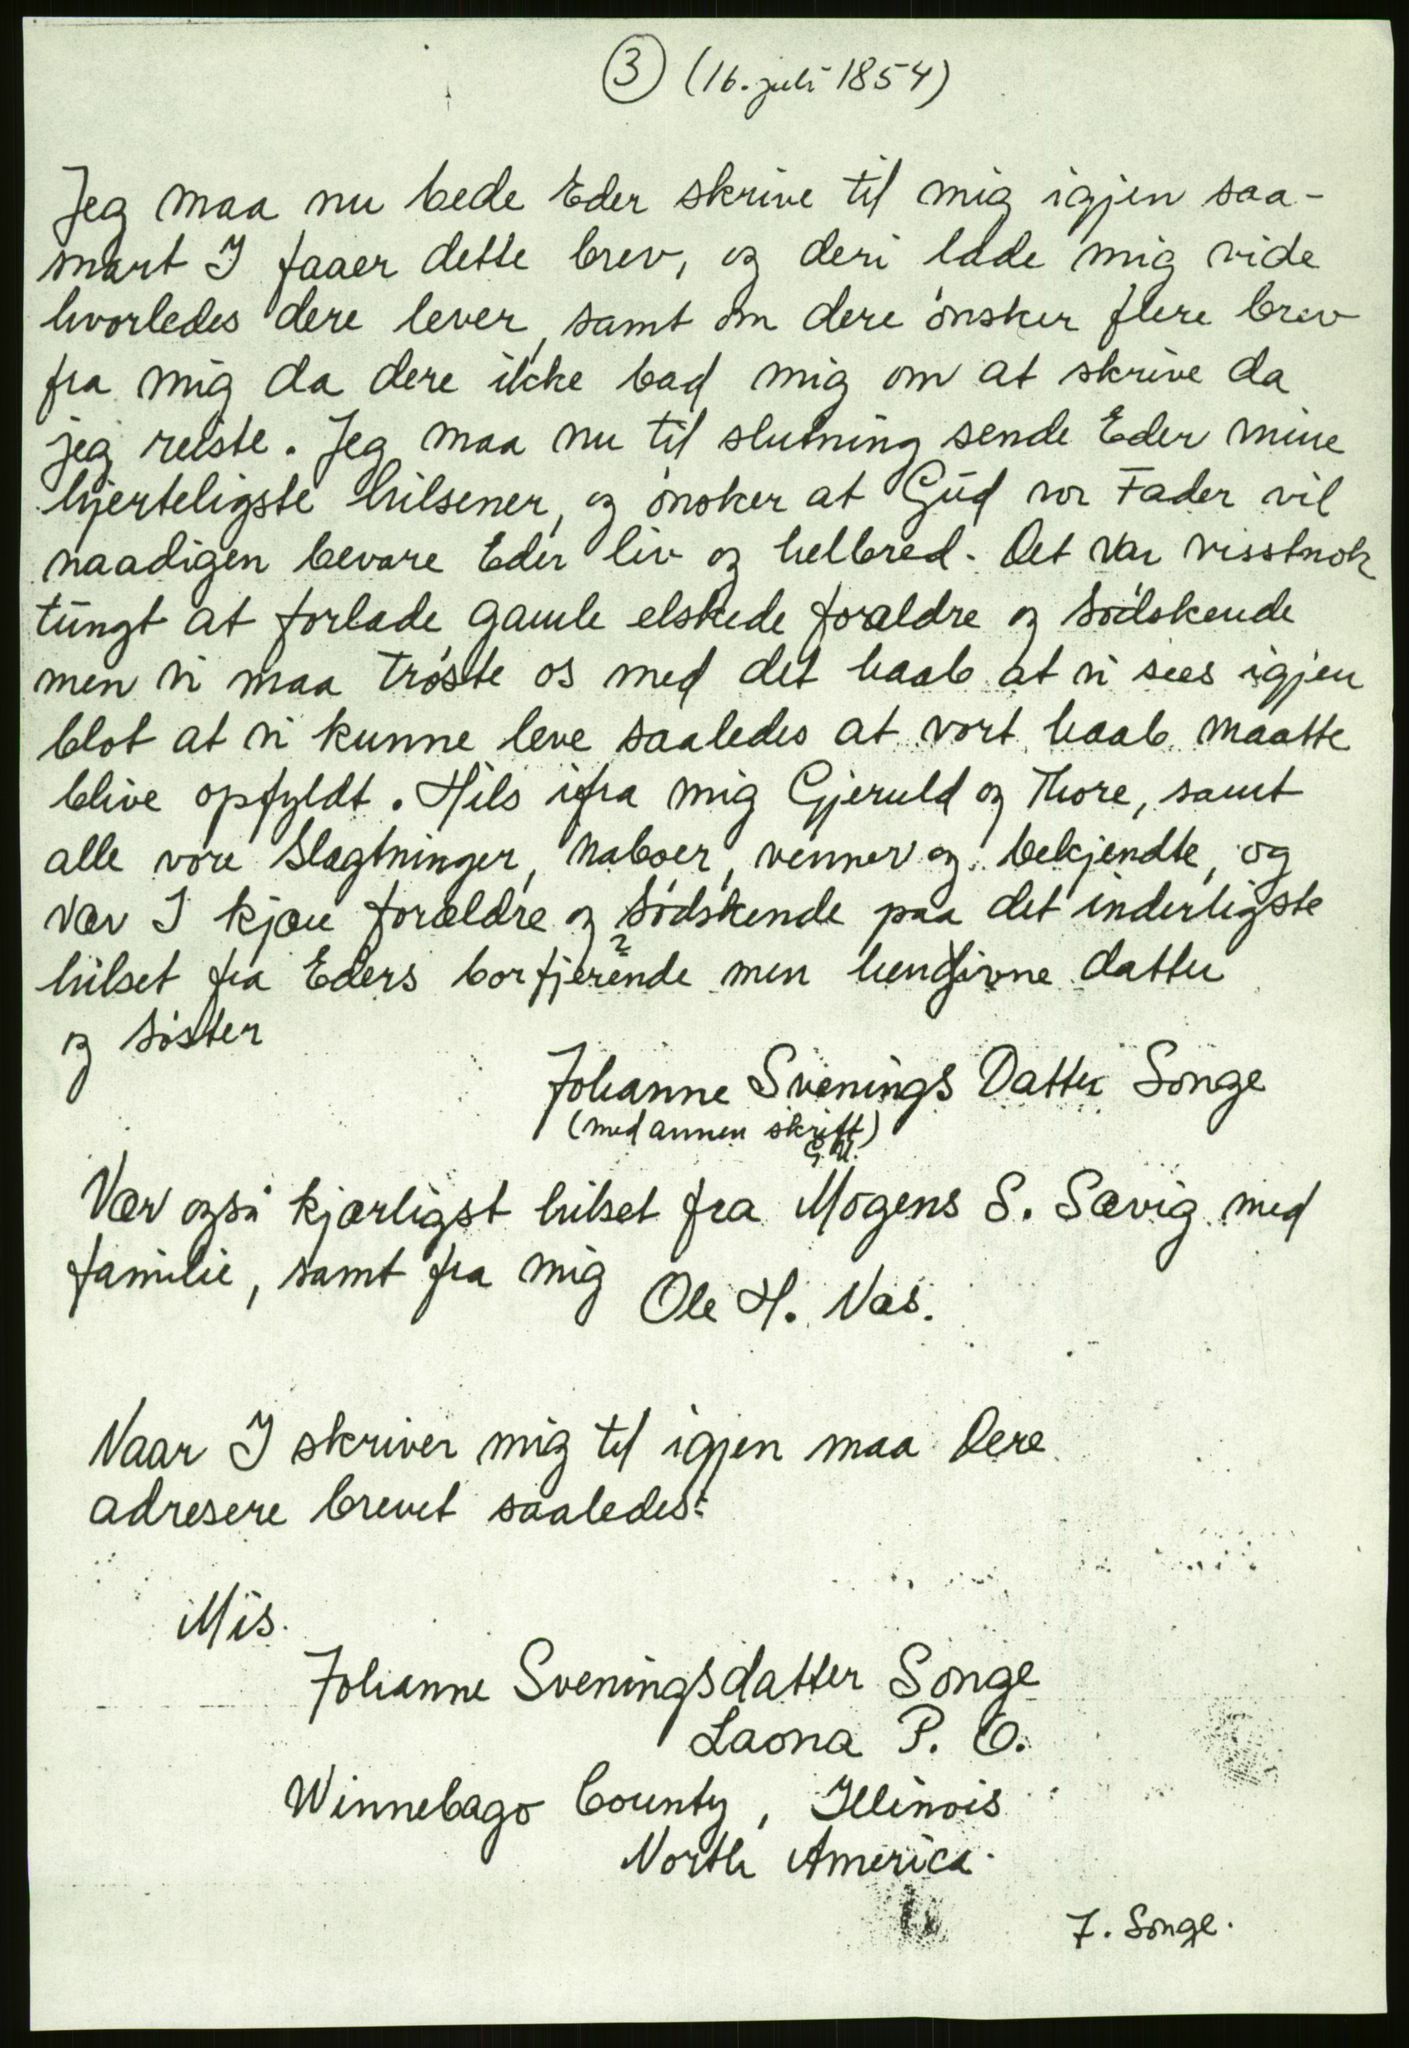 ③ (16. juli 1854)
Jeg maa nu bede Eder skrive til mig igjen saa-
snart I faaer dette brev, og deri lade mig vide
hvorledes dere lever, samt om dere ønsker flere brev
fra mig da dere ikke bad mig om at skrive da
jeg reiste. Jeg maa nu til slutning sende Eder mine
hjerteligste hilsener, og ønsker at Gud vor Fader vil
naadigen bevare Eder liv og helbred. Det var visstnok
tungt at forlade gamle elskede forældre og Sødskende
men vi maa trøste os med det haab at vi sees igjen
blot at vi kunne leve saaledes at vort haab maatte
blive opfyldt. Hils ifra mig Gjeruld og Thore, samt
alle vore Slægtninger, naboer, venner og bekjendte, og
vær I kjære forældre og Sødskende paa det inderligste
?
hilset fra Eders borfjerende men hengivne datter
og søster
Johanne Svenings Datter Songe
(med annen skrift)
G. U.
Vær også kjærligst hilset fra Mogens S. Sævig med
familie, samt fra mig
Ole H. Næs.
Naar I skriver mig til igjen maa Dere
adresere brevet saaledes:
Mis.
Johanne Sveningsdatter Songe
Laona P. O.
Winnebago County, Illinois
North America.
J. Songe.